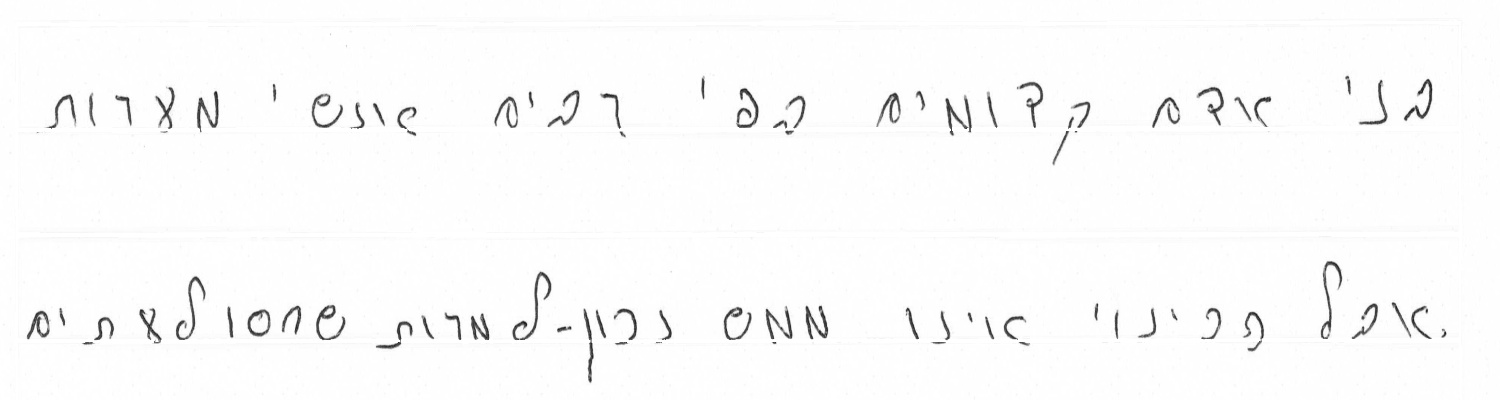 בני אדם קדומים בפי רבים אנשי מערות
.אבל הכינוי אינו ממש נכון-למרות שחסו לעתים